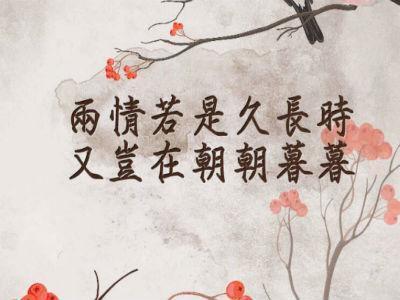 兩情若是久長時
又豈在朝朝暮暮